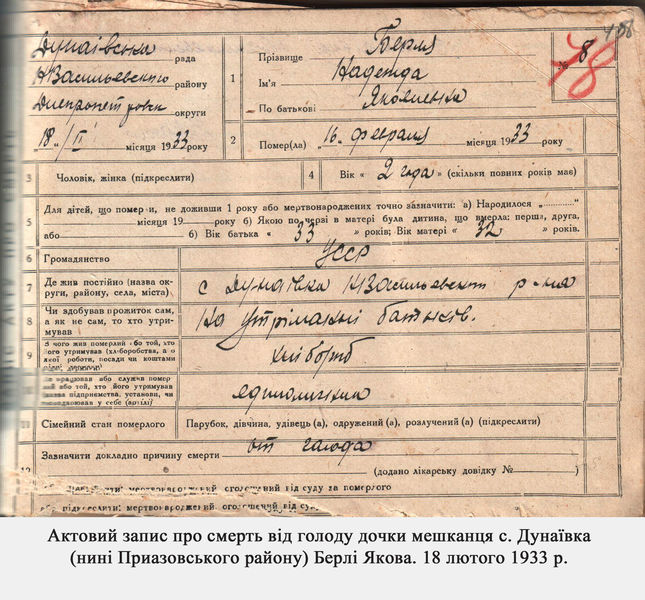 Дунаївська рада
НВасильевского району
Днепропетровск округи
"18"/II місяця 1933 року
1
Прізвище Берля
Ім'я Надежда
По батькові Яковлевна
№ 8
48
2
Помер(ла) "16" февраля місяця 1933 року
3 Чоловік, жінка (підкреслити)
4 Вік « 2 года » (скільки повних років має)
5
Для дітей, що помер·и, не доживши 1 року або мертвонароджених точно зазначити: а) Народилося „
місяця 19 року б) Якою по черзі в матері була дитина, що вмерла: перша, друга,
або б) Вік батька « 33 » років; Вік матері « 32 » років.
6 Громадянство УССР
7 Де жив постійно (назва ок-
руги, району, села, міста)
с Дунаївка НВасильевск р-на
8 Чи здобував прожиток сам,
а як не сам, то хто утри-
мував
На утріманні батьків.
9 З чого жив померлий або той, хто
його утримував (хліборобства, а о
якої роботи, посади чи коштами
хлібороб
або той, хто його утримував
підприємства, установи, чи
у себе (артілі)
единоличник
11 Сімейний стан померлого Парубок, дівчина, удівець(а), одружений(а), розлучений(а) (підкреслити)
Зазначити докладно причину смерти от голода
12 (додано лікарську довідку № )
мертвонароджений, оголошений від суду за померлого
підкреслити: мертвонароджений, оголошений від суд
Актовий запис про смерть від голоду дочки мешканця с. Дунаївка
(нині Приазовського району) Берлі Якова. 18 лютого 1933 р.